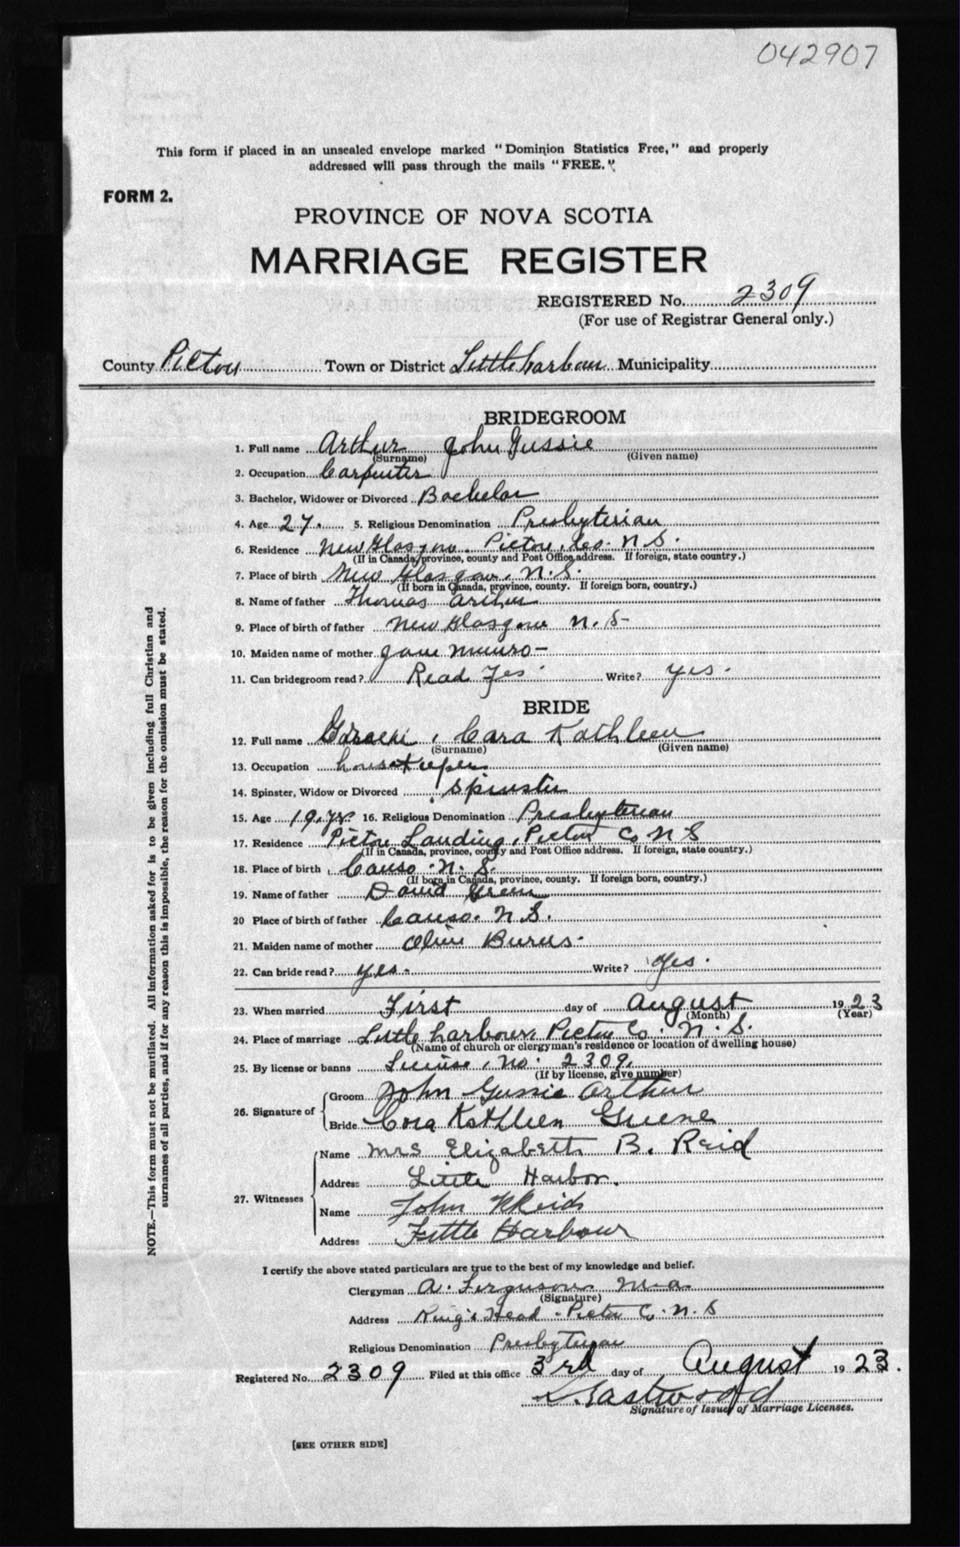 042907
This form if placed in an unsealed envelope marked "Dominion Statistics Free," and properly
addressed will pass through the mails "FREE."
FORM 2.
PROVINCE OF NOVA SCOTIA
MARRIAGE REGISTER
REGISTERED No. 2309
(For use of Registrar General only.)
County Pictou Town or District Little harbour Municipality
BRIDEGROOM
1. Full name Arthur John Gussie
(Surname) (Given name)
2. Occupation Carpenter
3. Bachelor, Widower or Divorced Bachelor
4. Age 27. 5. Religious Denomination Presbyterian
6. Residence New Glasgow. Pictou Co. N.S.
(If in Canada, province, county and Post Office address. If foreign, state country.)
7. Place of birth New Glasgow, N.S.
(If born in Canada, province, county. If foreign born, country.)
8. Name of father Thomas Arthur
9. Place of birth of father New Glasgow N.S-
10. Maiden name of mother Jane Munro-
11. Can bridegroom read? Read Yes Write? yes.
BRIDE
12. Full name Cora Kathleen
(Surname) (Given name)
13. Occupation housekeeper
14. Spinster, Widow or Divorced Spinster
15. Age 19 yr. 16. Religious Denomination Presbyterian
17. Residence Pictou Landing, Pictou Co N S
(If in Canada, province, county and Post Office address. If foreign, state country.)
18. Place of birth Canso. N. S.
(If born in Canada, province, county. If foreign born, country.)
19. Name of father David
20 Place of birth of father Canso. N.S.
21. Maiden name of mother Burns.
22. Can bride read? yes. Write? Yes.
23. When married First day of August 1923
(Month) (Year)
24. Place of marriage Little harbour, Pictou Co. N. S.
(Name of church or clergyman's residence or location of dwelling house)
25. By license or banns License. No. 2309.
(If by license, give number)
26. Signature of
Groom John Gussie Arthur
Bride Cora Kathleen Greene
27. Witnesses
Name Mrs Elizabeth B. Reid
Address Little Harbor.
Name John Reid
Address Little Harbour
I certify the above stated particulars are true to the best of my knowledge and belief.
Clergyman A. Ferguson M.a
(Signature)
Address King's Head - Pictou Co. N. S
Religious Denomination Presbyterian
Registered No. 2309 Filed at this office 3rd day of August 1923.
Eastwood
Signature of Issuer of Marriage Licenses.
[SEE OTHER SIDE]
NOTE.—This form must not be mutilated. All information asked for is to be given including full Christian and
surnames of all parties, and if for any reason this is impossible, the reason for the omission must be stated.